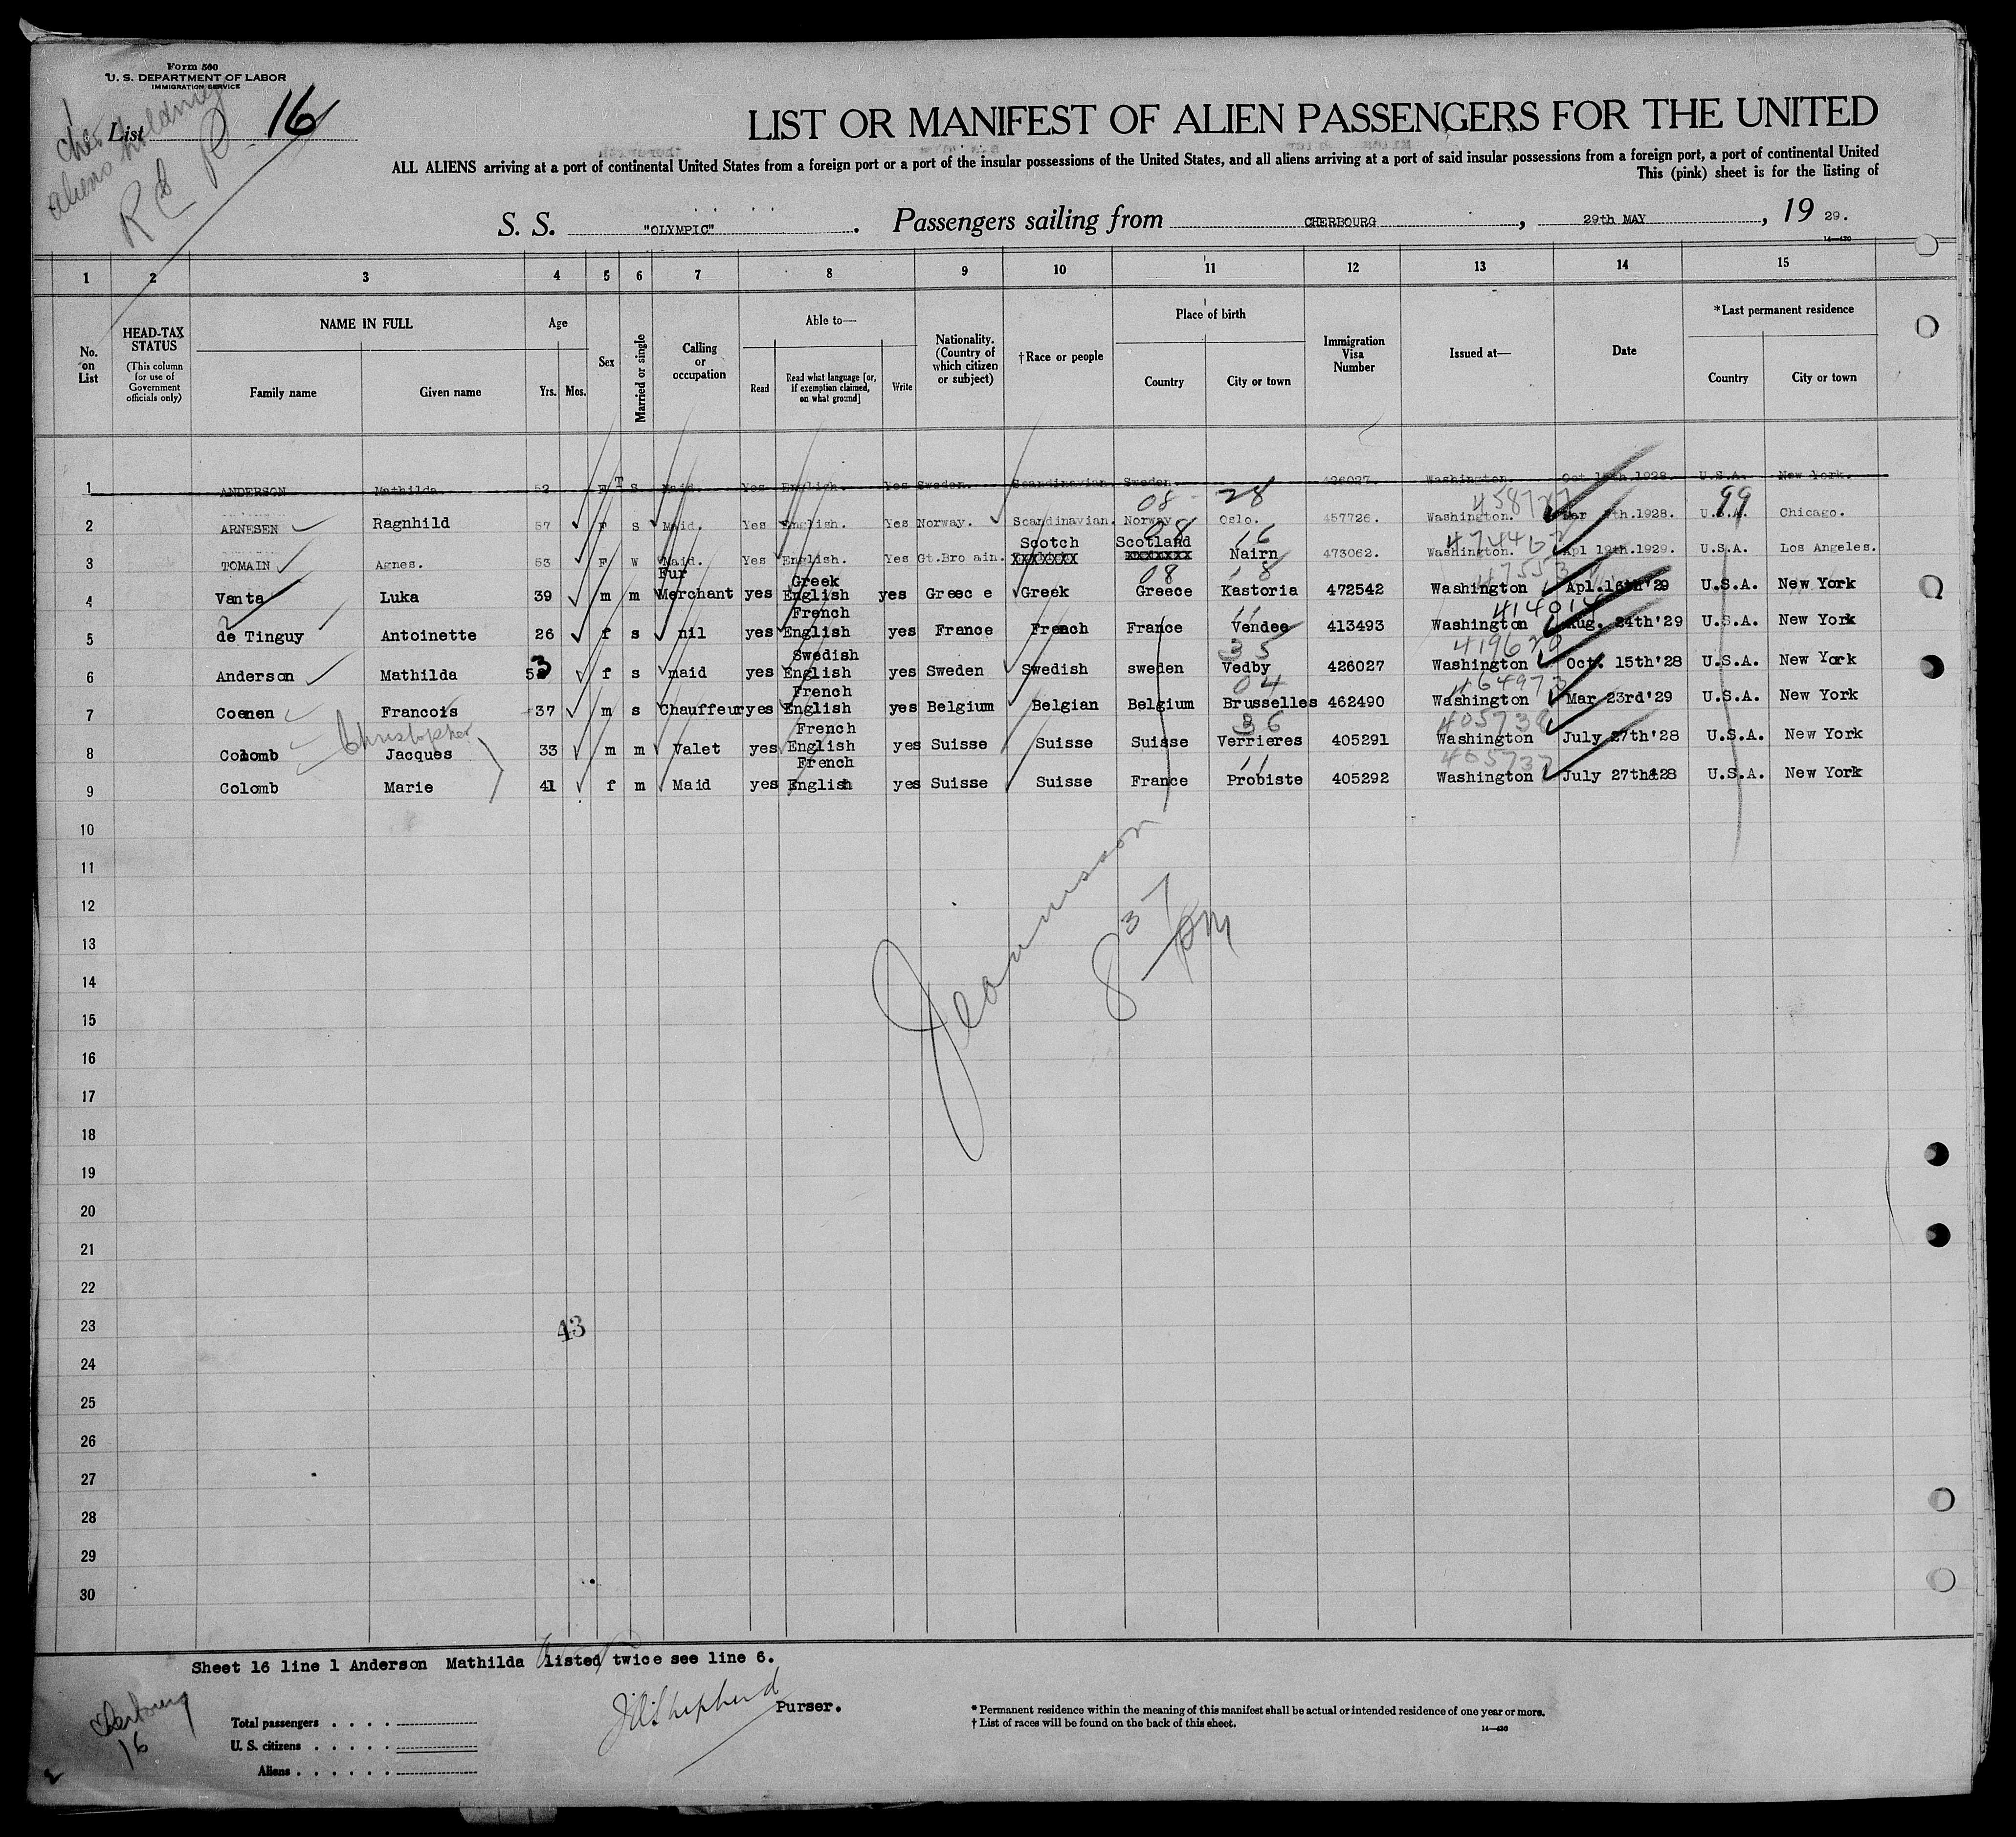 Form 500
U. S. DEPARTMENT OF LABOR
IMMIGRATION SERVICE
List 16
LIST OR MANIFEST OF ALIEN PASSENGERS FOR THE UNITED
ALL ALIENS arriving at a port of continental United States from a foreign port or a port of the insular possessions of the United States, and all aliens arriving at a port of said insular possessions from a foreign port, a port of continental United
This (pink) sheet is for the listing of
S. S. "OLYMPIC". Passengers sailing from CHERBOURG, 29th MAY, 19 29.
14—430
1 2 3 4 5 6 7 8 9 10 11 12 13 14 15
No. on List
HEAD-TAX STATUS
(This column for use of Government officials only)
NAME IN FULL
Family name Given name
Age
Yrs. Mos.
Sex
Married or single
Calling or occupation
Able to—
Read Read what language [or, if exemption claimed, on what ground] Write
Nationality. (Country of which citizen or subject)
†Race or people
Place of birth
Country City or town
Immigration Visa Number
Issued at—
Date
*Last permanent residence
Country City or town
1 ANDERSON Mathilda. 52 F S Maid. Yes English. Yes Sweden. Scandinavian Sweden. 426027. Washington. Oct 15th.1928. U.S.A. New York.
08 28 458727 99
2 ARNESEN Ragnhild 57 F S Maid. Yes English. Yes Norway. Scandinavian. Norway Oslo. 457726. Washington. Mar 9th.1928. U.S.A. Chicago.
Scotch Scotland 08 16 474467
3 TOMAIN Agnes. 53 F W Maid. Yes English. Yes Gt.Bro ain. XXXXXXX XXXXXXX Nairn 473062. Washington. Apl 19th.1929. U.S.A. Los Angeles.
Fur Greek 08 18
4 Vanta Luka 39 m m Merchant yes English yes Greec e Greek Greece Kastoria 472542 Washington Apl.16th'29 U.S.A. New York
French 11 414014
5 de Tinguy Antoinette 26 f s nil yes English yes France French France Vendee 413493 Washington Aug. 24th'29 U.S.A. New York
Swedish 35
6 Anderson Mathilda 53 f s maid yes English yes Sweden Swedish sweden Vedby 426027 Washington Oct. 15th'28 U.S.A. New York
French 04 464973
7 Coenen Francois 37 m s Chauffeur yes English yes Belgium Belgian Belgium Brusselles 462490 Washington Mar 23rd'29 U.S.A. New York
Christopher French 36 405738
8 Colomb Jacques 33 m m Valet yes English yes Suisse Suisse Suisse Verrieres 405291 Washington July 27th'28 U.S.A. New York
French 11 405737
9 Colomb Marie 41 f m Maid yes English yes Suisse Suisse France Probiste 405292 Washington July 27th&28 U.S.A. New York
10
11
12
13
14
15
16
17
18
19
20
21
22
23
24
25
26
27
28
29
30
8 37 pm
43
Sheet 16 line 1 Anderson Mathilda listed twice see line 6.
Cherbourg
16
Total passengers
U. S. citizens
Aliens
Shepherd Purser.
* Permanent residence within the meaning of this manifest shall be actual or intended residence of one year or more.
† List of races will be found on the back of this sheet.
14—430